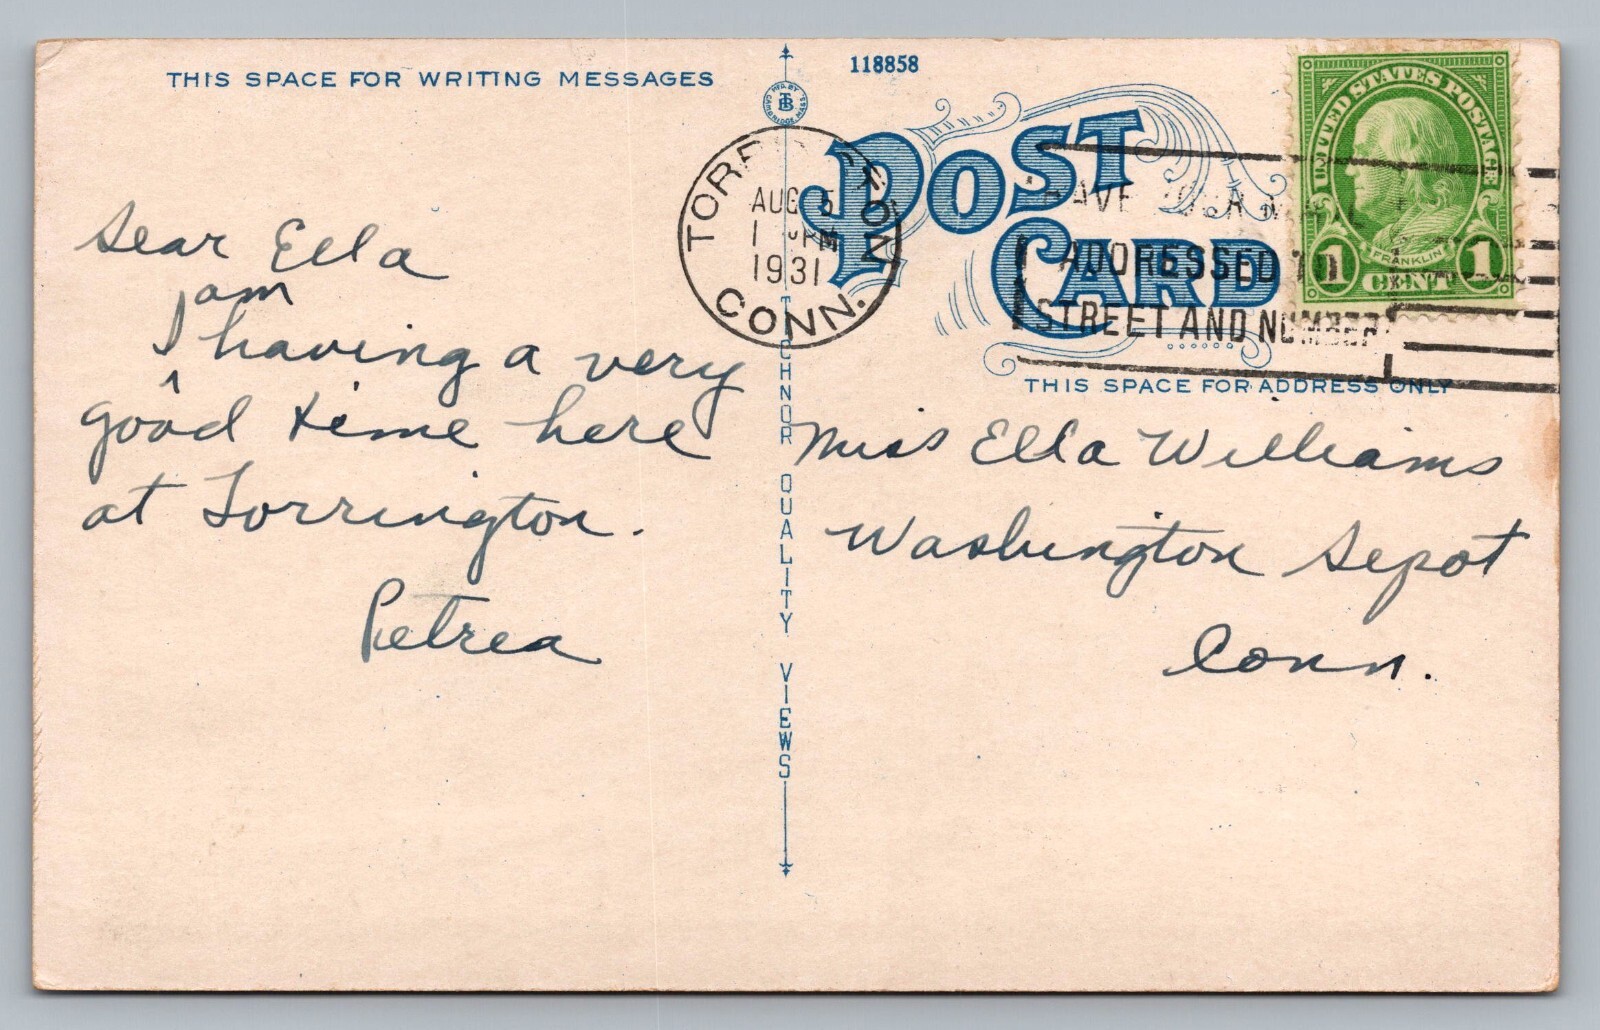 THIS SPACE FOR WRITING MESSAGES
118858
MFD. BY
TB
CAMBRIDGE, MASS.
POST
CARD
UNITED STATES POSTAGE
FRANKLIN
1 CENT 1
CONN.
AUG 5
PM
1931
ADDRESSED TO
STREET AND NUMBER
THIS SPACE FOR ADDRESS ONLY
TICHNOR QUALITY VIEWS
Dear Ella
am
I ^ having a very
good time here
at Torrington.
Petrea
Miss Ella Williams
Washington Depot
Conn.